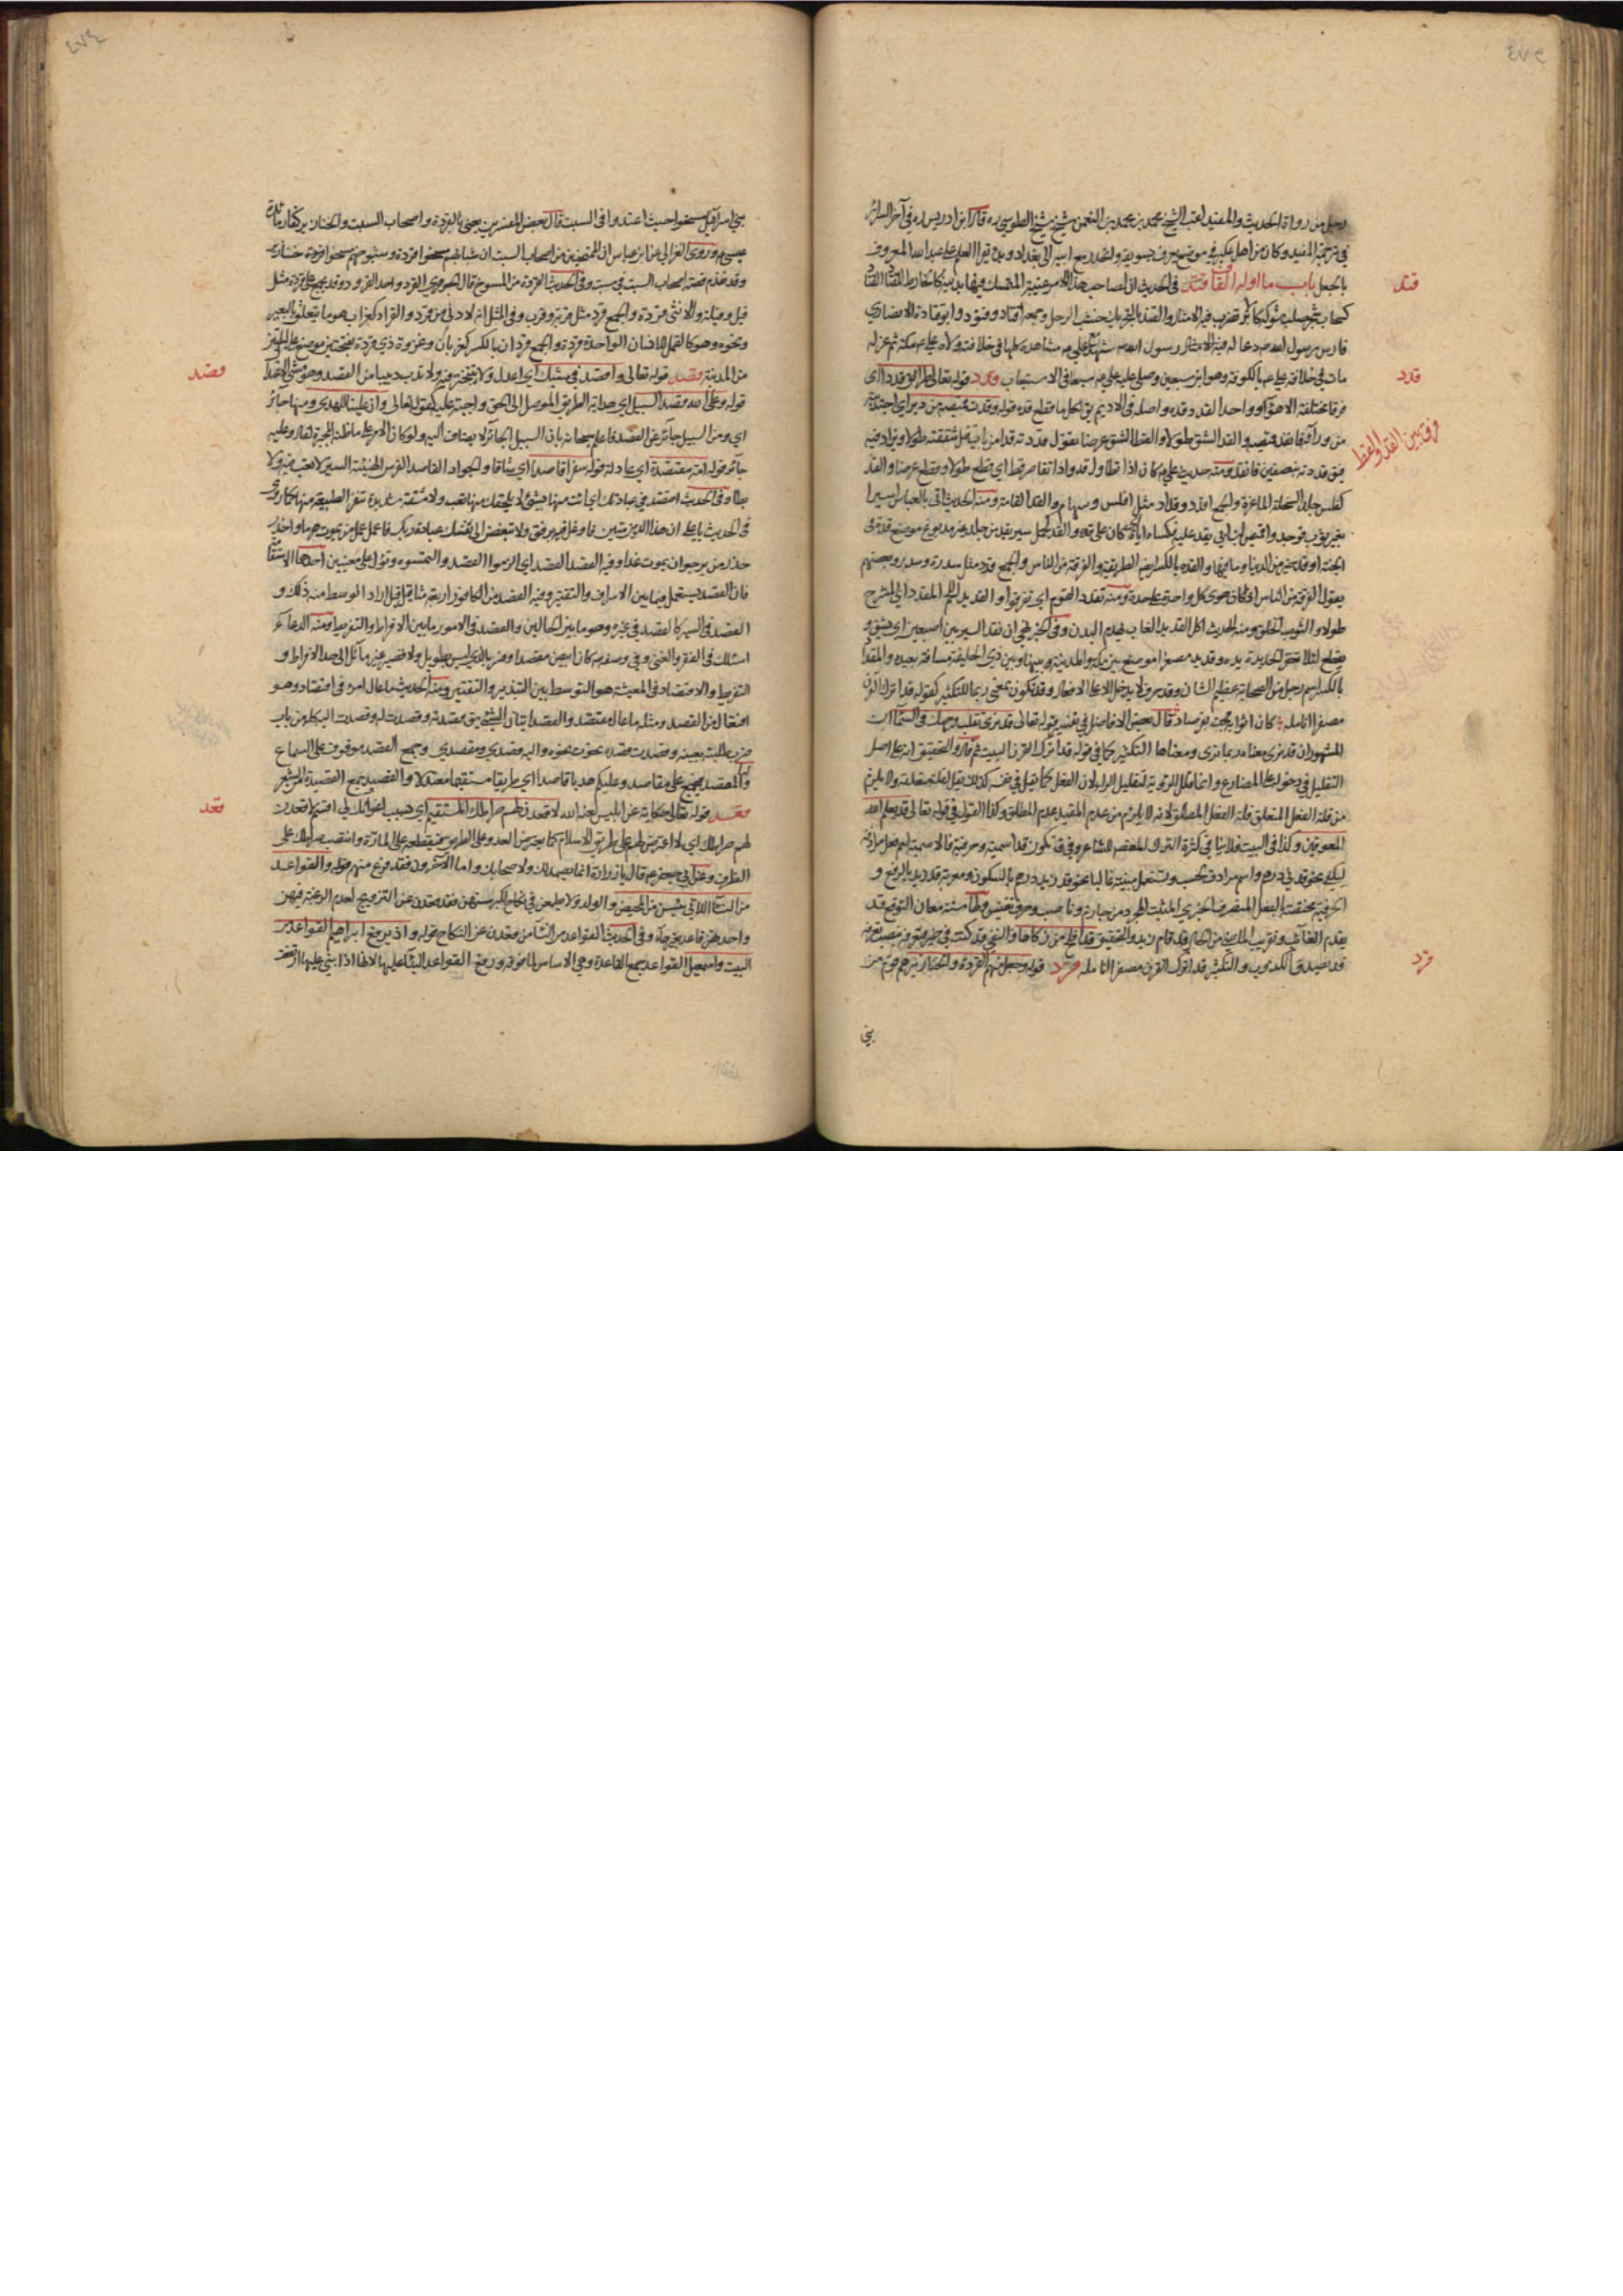 ٤٧٣
وجل من رواة الحديث والمفيد لقب الشيخ محمد بن محمد بن النعمن شيخ شيخ الطوسي ره قال ابن ادريس ره في آخر السرائر
في ترجمة المفيد وكان من اهل عكبرى من موضع يعرف بسويقة وانحدر مع ابيه الى بغداد وبدء بقراءة العلم على عبد الله المعروف
بالجعل باب ما اوله القاف قتد في الحديث ان لصاحب هذا الامر غيبة المتمسك فيها بدينه كالخارط للقتاد القتاد
كسحاب شجر صلب شوكه كالابر تضرب فيه الامثال والقتد بالتحريك خشب الرحل وجمعه اقتاد وقتود وابو قتادة الانصاري
فارس رسول الله ص دعا له رسول الله ص شهد مع علي ع مشاهده كلها في خلافته ولاه علي ع مكة ثم عزله
مات في خلافة علي ع بالكوفة وهو ابن سبعين وصلى عليه علي ع سبعا في الاستيعاب قدد قوله تعالى طرائق قددا اى
فرقا مختلفة الاهواء وواحد القدد قده واصله في الاديم يق لكل ما قطع قده قوله وقدت قميصه من دبر اي اجتذبته
من ورائه فانقد قميصه والقد الشق طولا والقط الشق عرضا تقول قددته قدا من باب قتل شققته طولا وتزاد فيه
فيق قددته بنصفين فانقد ومنه حديث علي ع كان اذا تطاول قد واذا تقاصر قط اي قطع طولا وقطع عرضا والقد
كفلس جلد السخلة الماعزة والجمع اقد وقداد مثل افلس وسهام والقد القامة ومنه الحديث اتى بالعباس اسيرا
بغير ثوب فوجدوا قميص ابن ابي يقد عليه فكساه اياه اى كان على قده والقد كحمل سير يقد من جلد غير مدبوغ موضع قده في
الجنة او قده خير من الدنيا وما فيها والقده بالكسر ايض الطريقة والفرقة من الناس والجمع قدد مثل سدرة وسدر وبعضهم
يقول الفرقة من الناس اذا كان هوى كل واحد على حدة ومنه تقدد القوم اي تفرقوا والقديد اللحم المقدد اي المشرح
طولا والثوب الخلق ومنه الحديث اكل القديد الغاب يهدم البدن وفي الخبر نهى ان يقد السير بين اصبعين اي يشق و
يقطع لئلا تعقر الحديدة يده وقديد مصغرا موضع بين مكة والمدينة وبينها وبين ذي الحليفة مسافة بعيدة والمقداد
بالكسر اسم رجل من الصحابة عظيم الشان وقد حرف لا يدخل الا على الافعال وقد تكون بمعنى ربما للتكثير كقوله قد اترك القرن
مصفرا انامله كان اثوابه مجت بفرصاد قال بعض الافاضل في تفسير قوله تعالى قد نرى تقلب وجهك في السماء ان
المشهور ان قد نرى معناه ربما نرى ومعناها التكثير كما في قوله قد اترك القرن البيت ثم قال والتحقيق انه على اصل
التقليل في دخوله على المضارع وانما قلل الرؤية لتقليل المرئ لان الفعل كما يقل في نفسه كذلك يقل لقلة متعلقه ولا يلزم
من قلة الفعل المتعلق قلة الفعل المطلق لانه لا يلزم من عدم المقيد عدم المطلق وكذا القول في قوله تعالى قد يعلم الله
المعوقين وكذا في البيت فلا ينافي كثرة الترك المقصود للشاعر وفي ق تكون قد اسمية وحرفية فالاسمية اسم فعل مرادفة
ليكفي نحو قدني درهم واسم مرادف لحسب وتستعمل مبنية غالبا نحو قد زيد درهم بالسكون ومعربة قد زيد بالرفع و
الحرفية مختصة بالفعل المتصرف الخبري المثبت المجرد من جازم وناصب وحرف تنفيس ولها ستة معان التوقع قد
يقدم الغائب وتقريب الماضي من الحال قد قام زيد والتحقيق قد افلح من زكاها والنفي قد كنت في خير فتعرفه بنصب تعرفه
قد يصدق الكذوب والتكثير قد اترك القرن مصفرا انامله قرد قوله وجعل منهم القردة والخنازير هم قوم من
بني
قتد
قدد
فرق بين القد والقط
قرد
٤٧٤
بني اسرائيل مسخوا حيث اعتدوا في السبت قال بعض المفسرين يعني بالقردة اصحاب السبت والخنازير كفار مائدة
عيسى ع وروى الغزالي عن ابن عباس ان الممسوخين من اصحاب السبت ان شبانهم مسخوا قردة وشيوخهم مسخوا خنازير
وقد تقدم قصة اصحاب السبت في سبت وفي الحديث القردة من المسوخ قال الجوهري القرد واحد القرود وقد يجمع على قردة مثل
فيل وفيلة والانثى قردة والجمع قرد مثل قربة وقرب وفي المثل انه لا دنى من قرد والقراد كغراب هو ما يتعلق بالبعير
ونحوه وهو كالقمل للانسان الواحدة قردة والجمع قردان بالكسر كغربان وغزوة ذي قردة بفتحتين موضع على ليلتين
من المدينة قصد قوله تعالى واقصد في مشيك اي اعدل ولا تتبختر فيه ولا تدب دبيبا من القصد وهو مشى الاعتدال
قوله وعلى الله قصد السبيل اى هداية الطريق الموصل الى الحق واجبة عليه كقوله تعالى وان علينا للهدى ومنها جائر
اي ومن السبيل جائر عن القصد فاعلم سبحانه بان السبيل الجائر لا يضاف اليه ولو كان الامر على ما ظنه المجبرة لقال وعليه
جائر قوله امة مقتصدة اي عادلة قوله سفرا قاصدا اي شاقا والجواد القاصد الفرس الهنيئة السير لا تعب فيه ولا
بطا وفي الحديث اقتصد في عبادتك اي ائت منها بشئ لا يلحقك منها تعب ولا مشقة شديدة تنفر الطبيعة منها كما روى
في الحديث يا علي ان هذا الدين متين فاوغل فيه برفق ولا تبغض الى نفسك عبادة ربك فاعمل عمل من يموت هرما واحذر
حذر من يرجو ان يموت غدا وفيه القصد القصد اي الزموا القصد والتمسوه ويؤل على معنيين احدهما الاستقامة
فان القصد يستعمل فيما بين الاسراف والتقتير وفيه القصد من الكافور اربعة مثاقيل قيل اراد الوسط منه ذلك و
القصد في السير كالقصد في غيره وهو ما بين الحالين والقصد في الامور ما بين الافراط والتفريط ومنه الدعاء
اسئلك القصد في الفقر والغنى وفي وصفه ص كان ابيض مقصدا وفسر بالذي ليس بطويل ولا قصير غير مائل الى حد الافراط و
التفريط والاقتصاد في المعيشة هو التوسط بين التبذير والتقتير ومنه الحديث ما عال امرء في اقتصاد وهو
افتعال من القصد ومثله ما عال مقتصد والقصد اتيان الشئ يق قصدته وقصدت له وقصدت اليه كله من باب
ضرب طلبته بعينه وقصدت قصده نحوت نحوه واليه قصدي ومقصدي وجمع القصد موقوف على السماع
واما المقصد فيجمع على مقاصد وعليكم هديا قاصدا اي طريقا مستقيما معتدلا والقصيد جمع القصيدة الشعر
قعد قوله تعالى حكاية عن ابليس لعنه الله لاقعدن لهم صراطك المستقيم اي بسبب اغوائك لي اقسم لاقعدن
لهم صراطك اي لاعترضن لهم على طريق الاسلام كما يعترض العدو على الطريق فيقطعه على المارة وانتصب صراطك على
الظرف وعن ابي جعفر ع قال يا زرارة انما يصمد لك ولاصحابك واما الآخرون فقد فرغ منهم قوله والقواعد
من النساء اللاتي يئسن من المحيض والولد ولا يطمعن في نكاح لكبر سنهن فقد قعدن عن التزويج لعدم الرغبة فيهن
واحدتهن قاعد بغير هاء وفي الحديث القواعد من النساء من قعدن عن النكاح قوله واذ يرفع ابراهيم القواعد من
البيت واسمعيل القواعد جمع القاعدة وهي الاساس لما فوقه ورفع القواعد البناء عليها لانها اذا بني عليها ارتفعت
قصد
قعد